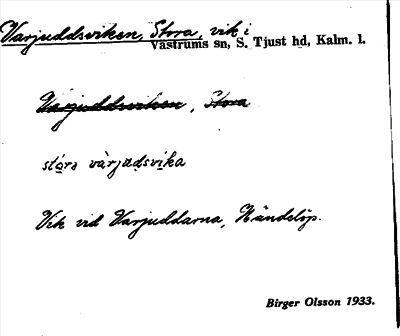 Varjuddsviken, Stora, vik i
Västrums sn, S. Tjust hd, Kalm. l.
Varjuddsviken, Stora
stora vàrjudsvika
Vik vid Varjuddarna, Händelöp.
Birger Olsson 1933.